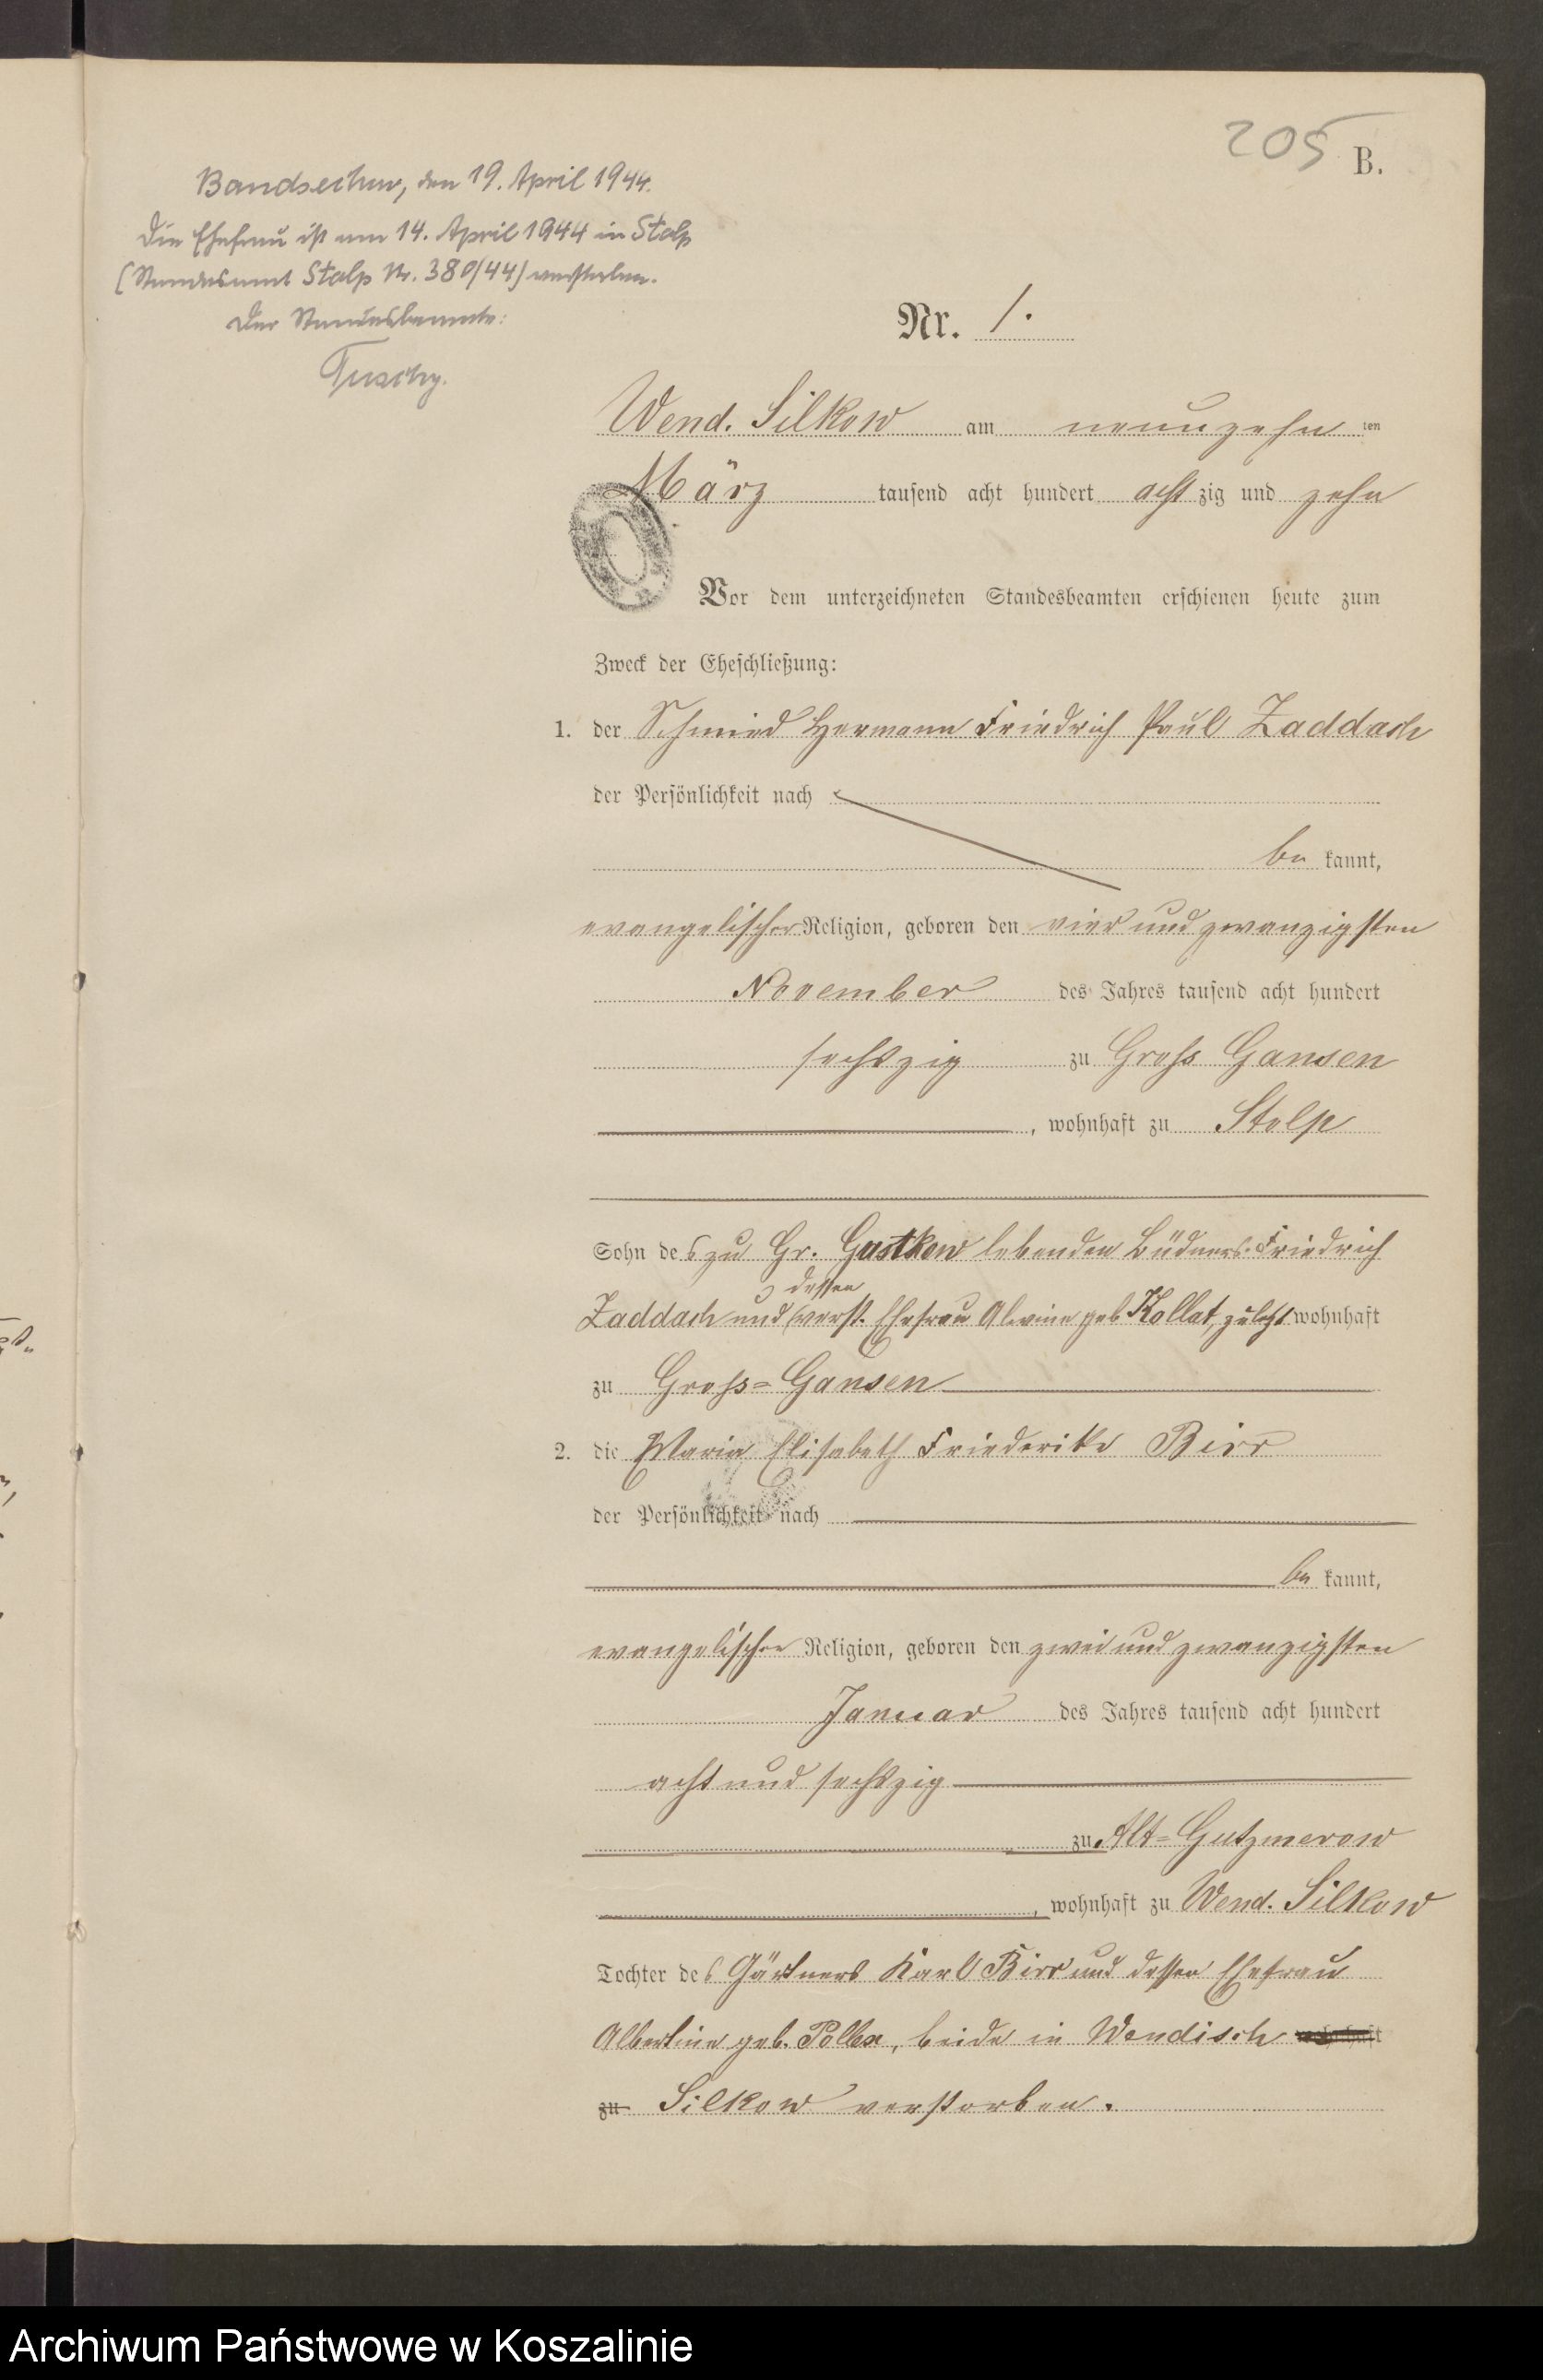 205 B.
Bandsechow, den 19. April 1944.
Die Ehefrau ist am 14. April 1944 in Stolp
(Standesamt Stolp Nr. 380/44) verstorben.
Der Standesbeamte:
Nr. 1.
Wend. Silkow am neunzehn ten
März tausend acht hundert acht zig und zehn
Vor dem unterzeichneten Standesbeamten erschienen heute zum
Zweck der Eheschließung:
1. der Schmied Hermann Friedrich Paul Zaddach
der Persönlichkeit nach
be kannt,
evangelischer Religion, geboren den vier und zwanzigsten
November des Jahres tausend acht hundert
sechszig zu Gross Gansen
, wohnhaft zu Stolp
Sohn des zu Gr. Gustkow lebenden Büdners Friedrich
dessen
Zaddach und verst. Ehefrau Alwine geb. Kollat, zuletzt wohnhaft
zu Gross=Gansen
2. die Maria Elisabeth Friederike Birr
der Persönlichkeit nach
be kannt,
evangelischer Religion, geboren den zwei und zwanzigsten
Januar des Jahres tausend acht hundert
acht und sechszig
zu Alt=Gutzmerow
, wohnhaft zu Wend. Silkow
Tochter des Gärtners Karl Birr und dessen Ehefrau
Albertine geb. beide in Wendisch wohnhaft
zu Silkow verstorben.
Archiwum Państwowe w Koszalinie